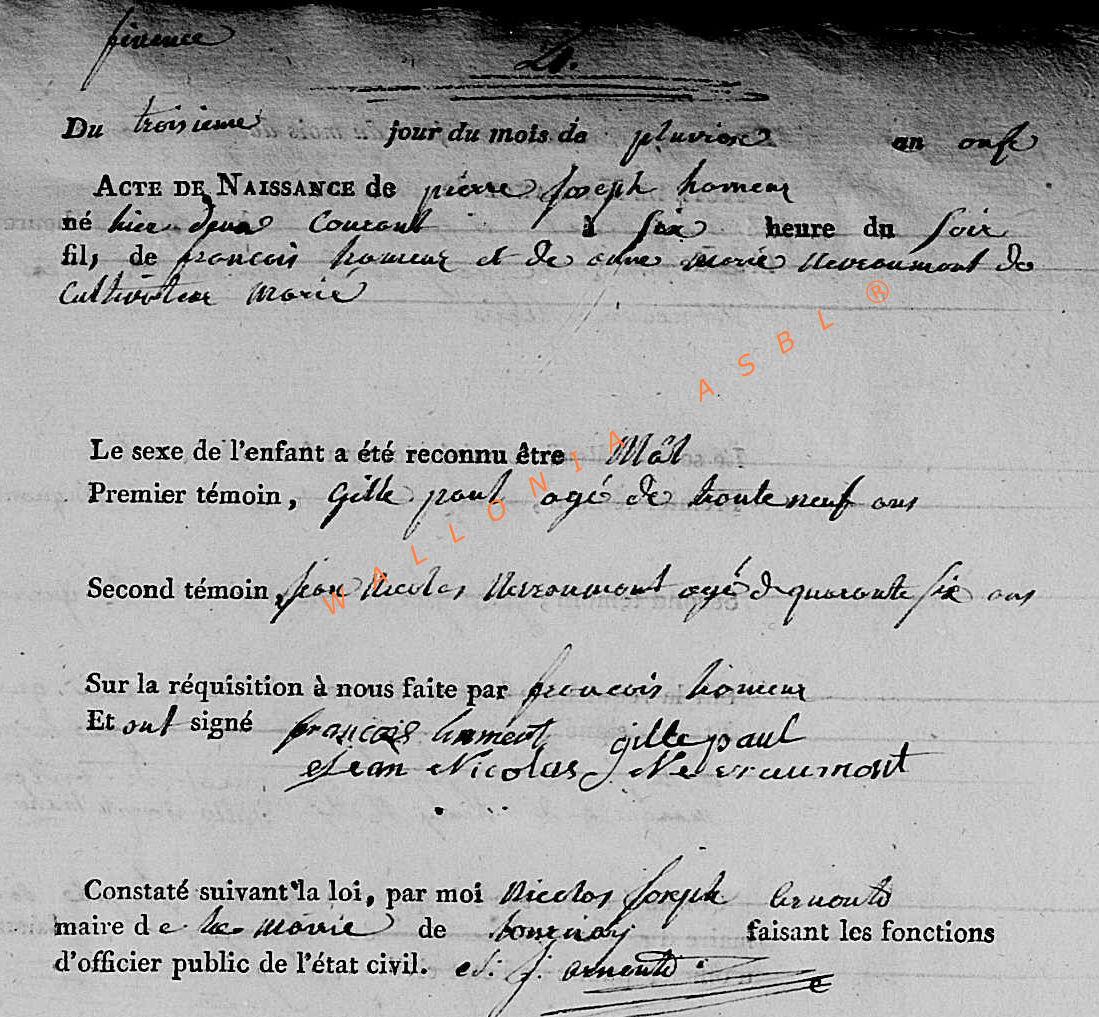 finence
4.
Du troisieme jour du mois de pluviose an onse
ACTE DE NAISSANCE de pierre Joseph homeur
né hier deux Courant à six heure du soir
fils de francois homeur et de anne marie Nevraumont de
Cultivateur Marié
Le sexe de l'enfant a été reconnu être Mâl
Premier témoin, gille paul agé de trente neuf ans
Second témoin, jean Nicolas Nevraumont agé de quarante six ans
Sur la réquisition à nous faite par francois homeur
Et ont signé francois gille paul
Jean Nicolas Nevraumont
Constaté suivant la loi, par moi Nicolas Joseph arnould
maire de la Mairie de tournay faisant les fonctions
d'officier public de l'état civil. N. J. arnould
WALLONIA ASBL ®